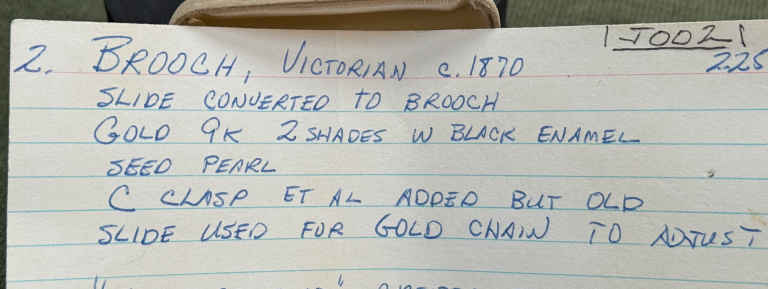 1J0021
2. BROOCH, VICTORIAN c. 1870 225
SLIDE CONVERTED TO BROOCH
GOLD 9K 2 SHADES W BLACK ENAMEL
SEED PEARL
C CLASP ET AL ADDED BUT OLD
SLIDE USED FOR GOLD CHAIN TO ADJUST